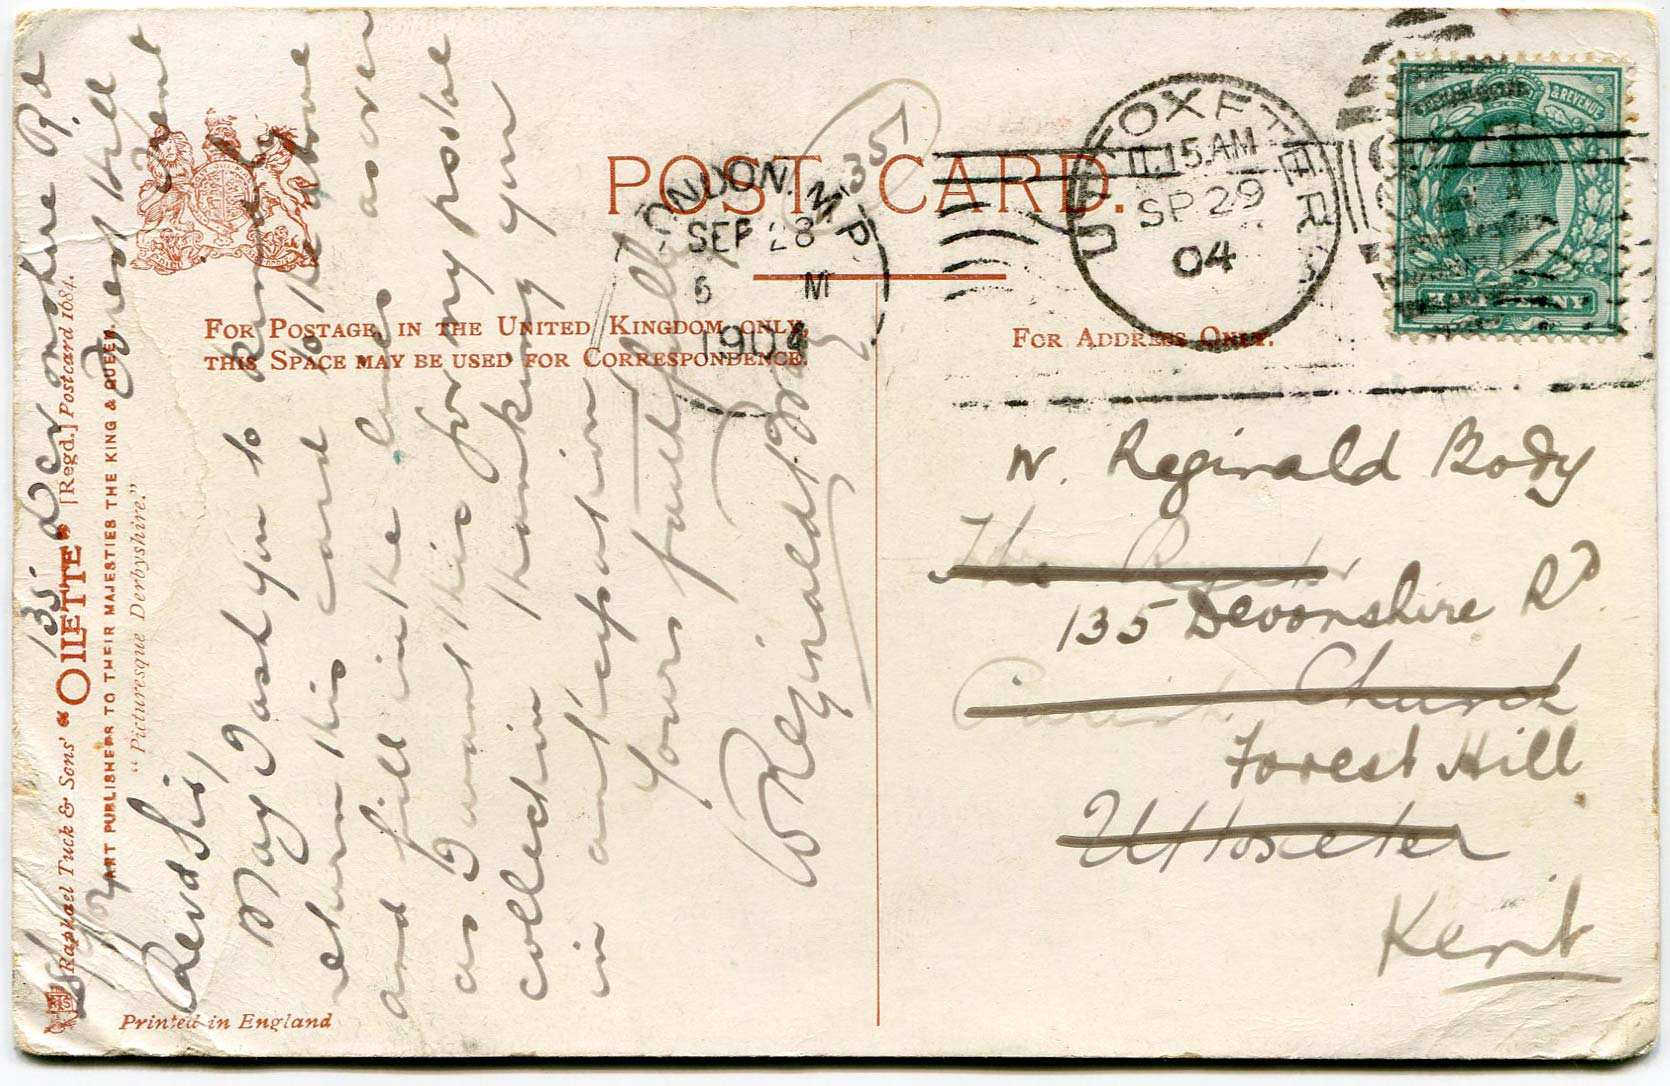 POST CARD.
FOR POSTAGE IN THE UNITED KINGDOM ONLY,
THIS SPACE MAY BE USED FOR CORRESPONDENCE.
FOR ADDRESS ONLY.
Raphael Tuck & Sons' "OILETTE" [Regd.] Postcard 1684.
ART PUBLISHERS TO THEIR MAJESTIES THE KING & QUEEN.
"Picturesque Derbyshire."
Printed in England
135 Devonshire Rd
Forest Hill
Kent
Revd Sir,
May I ask you to kindly
return this card to the above
and fill in the lines as over
as I want this for my postal
collection thanking you
in anticipation
Yours faithfully
W Reginald Body
35
LONDON. N.P.
SEP 28
6 M
1904
UTTOXETER
11.15 AM
SP 29
04
POSTAGE & REVENUE
HALFPENNY
W. Reginald Body
The
135 Devonshire Rd
Parish Church
Forest Hill
Uttoxeter
Kent